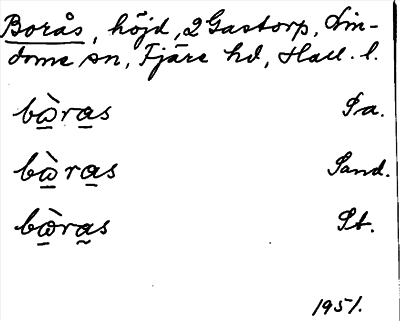 Borås, höjd, 2 Gastorp, Lin-
dome sn, Fjäre hd, Hall. l.
bὼras Sa.
bὼras Sand.
bὼras St.
1951.